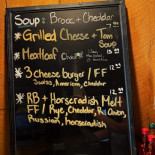 Soup: Brocc + Cheddar
*Grilled Cheese + Tom Soup
*Meatloaf
*3 cheese burger / FF
Swiss, American, Cheddar
*RB + Horseradish Melt
FF / Rye, Cheddar, Red Onion,
Russian, horseradish